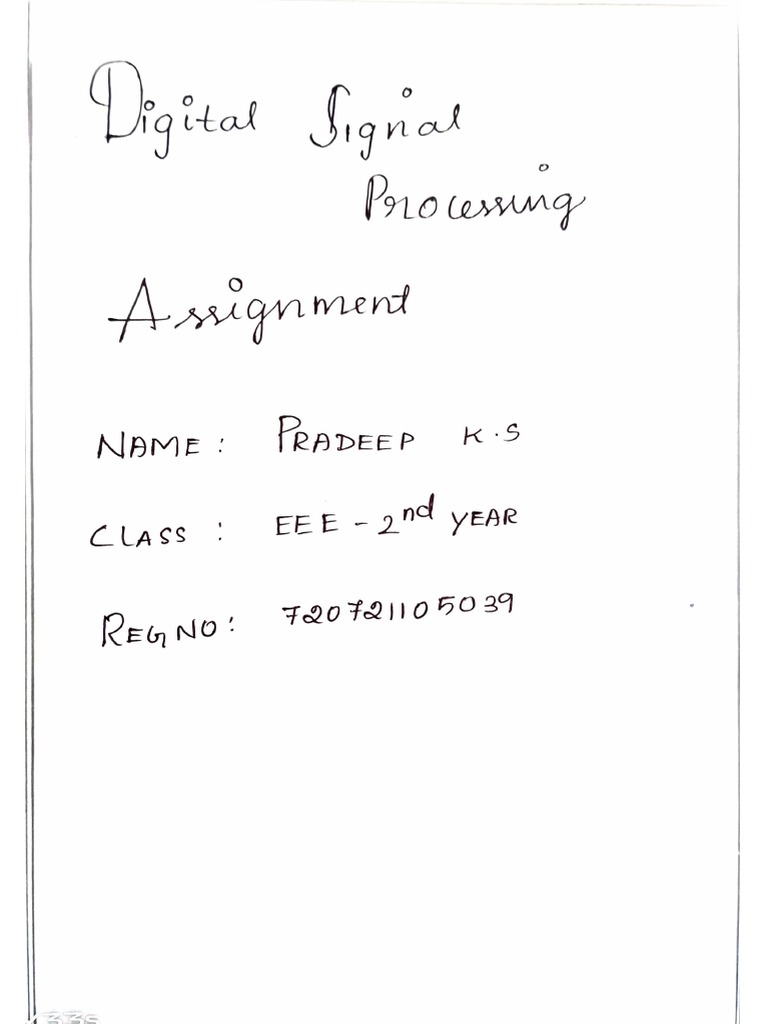 Digital Signal
Processing
Assignment
NAME: PRADEEP K.S
CLASS : EEE - 2nd YEAR
REG NO: 720721105039